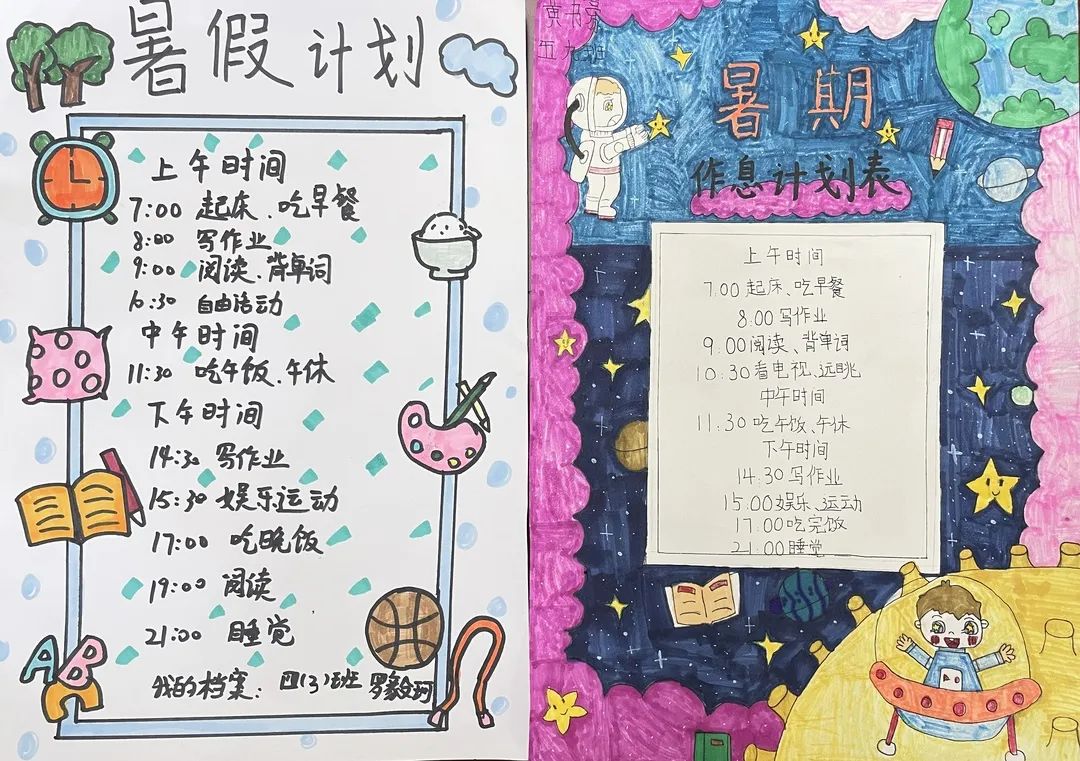 暑假计划
上午时间
7:00 起床、吃早餐
8:00 写作业
9:00 阅读、背单词
10:30 自由活动
中午时间
11:30 吃午饭、午休
下午时间
14:30 写作业
15:30 娱乐、运动
17:00 吃晚饭
19:00 阅读
21:00 睡觉
我的档案: 四(3)班
ABC
五九班
暑期
作息计划表
上午时间
7.00 起床、吃早餐
8.00 写作业
9.00 阅读、背单词
10.30 看电视、远眺
中午时间
11.30 吃午饭、午休
下午时间
14.30 写作业
15.00 娱乐、运动
17.00 吃完饭
21.00 睡觉